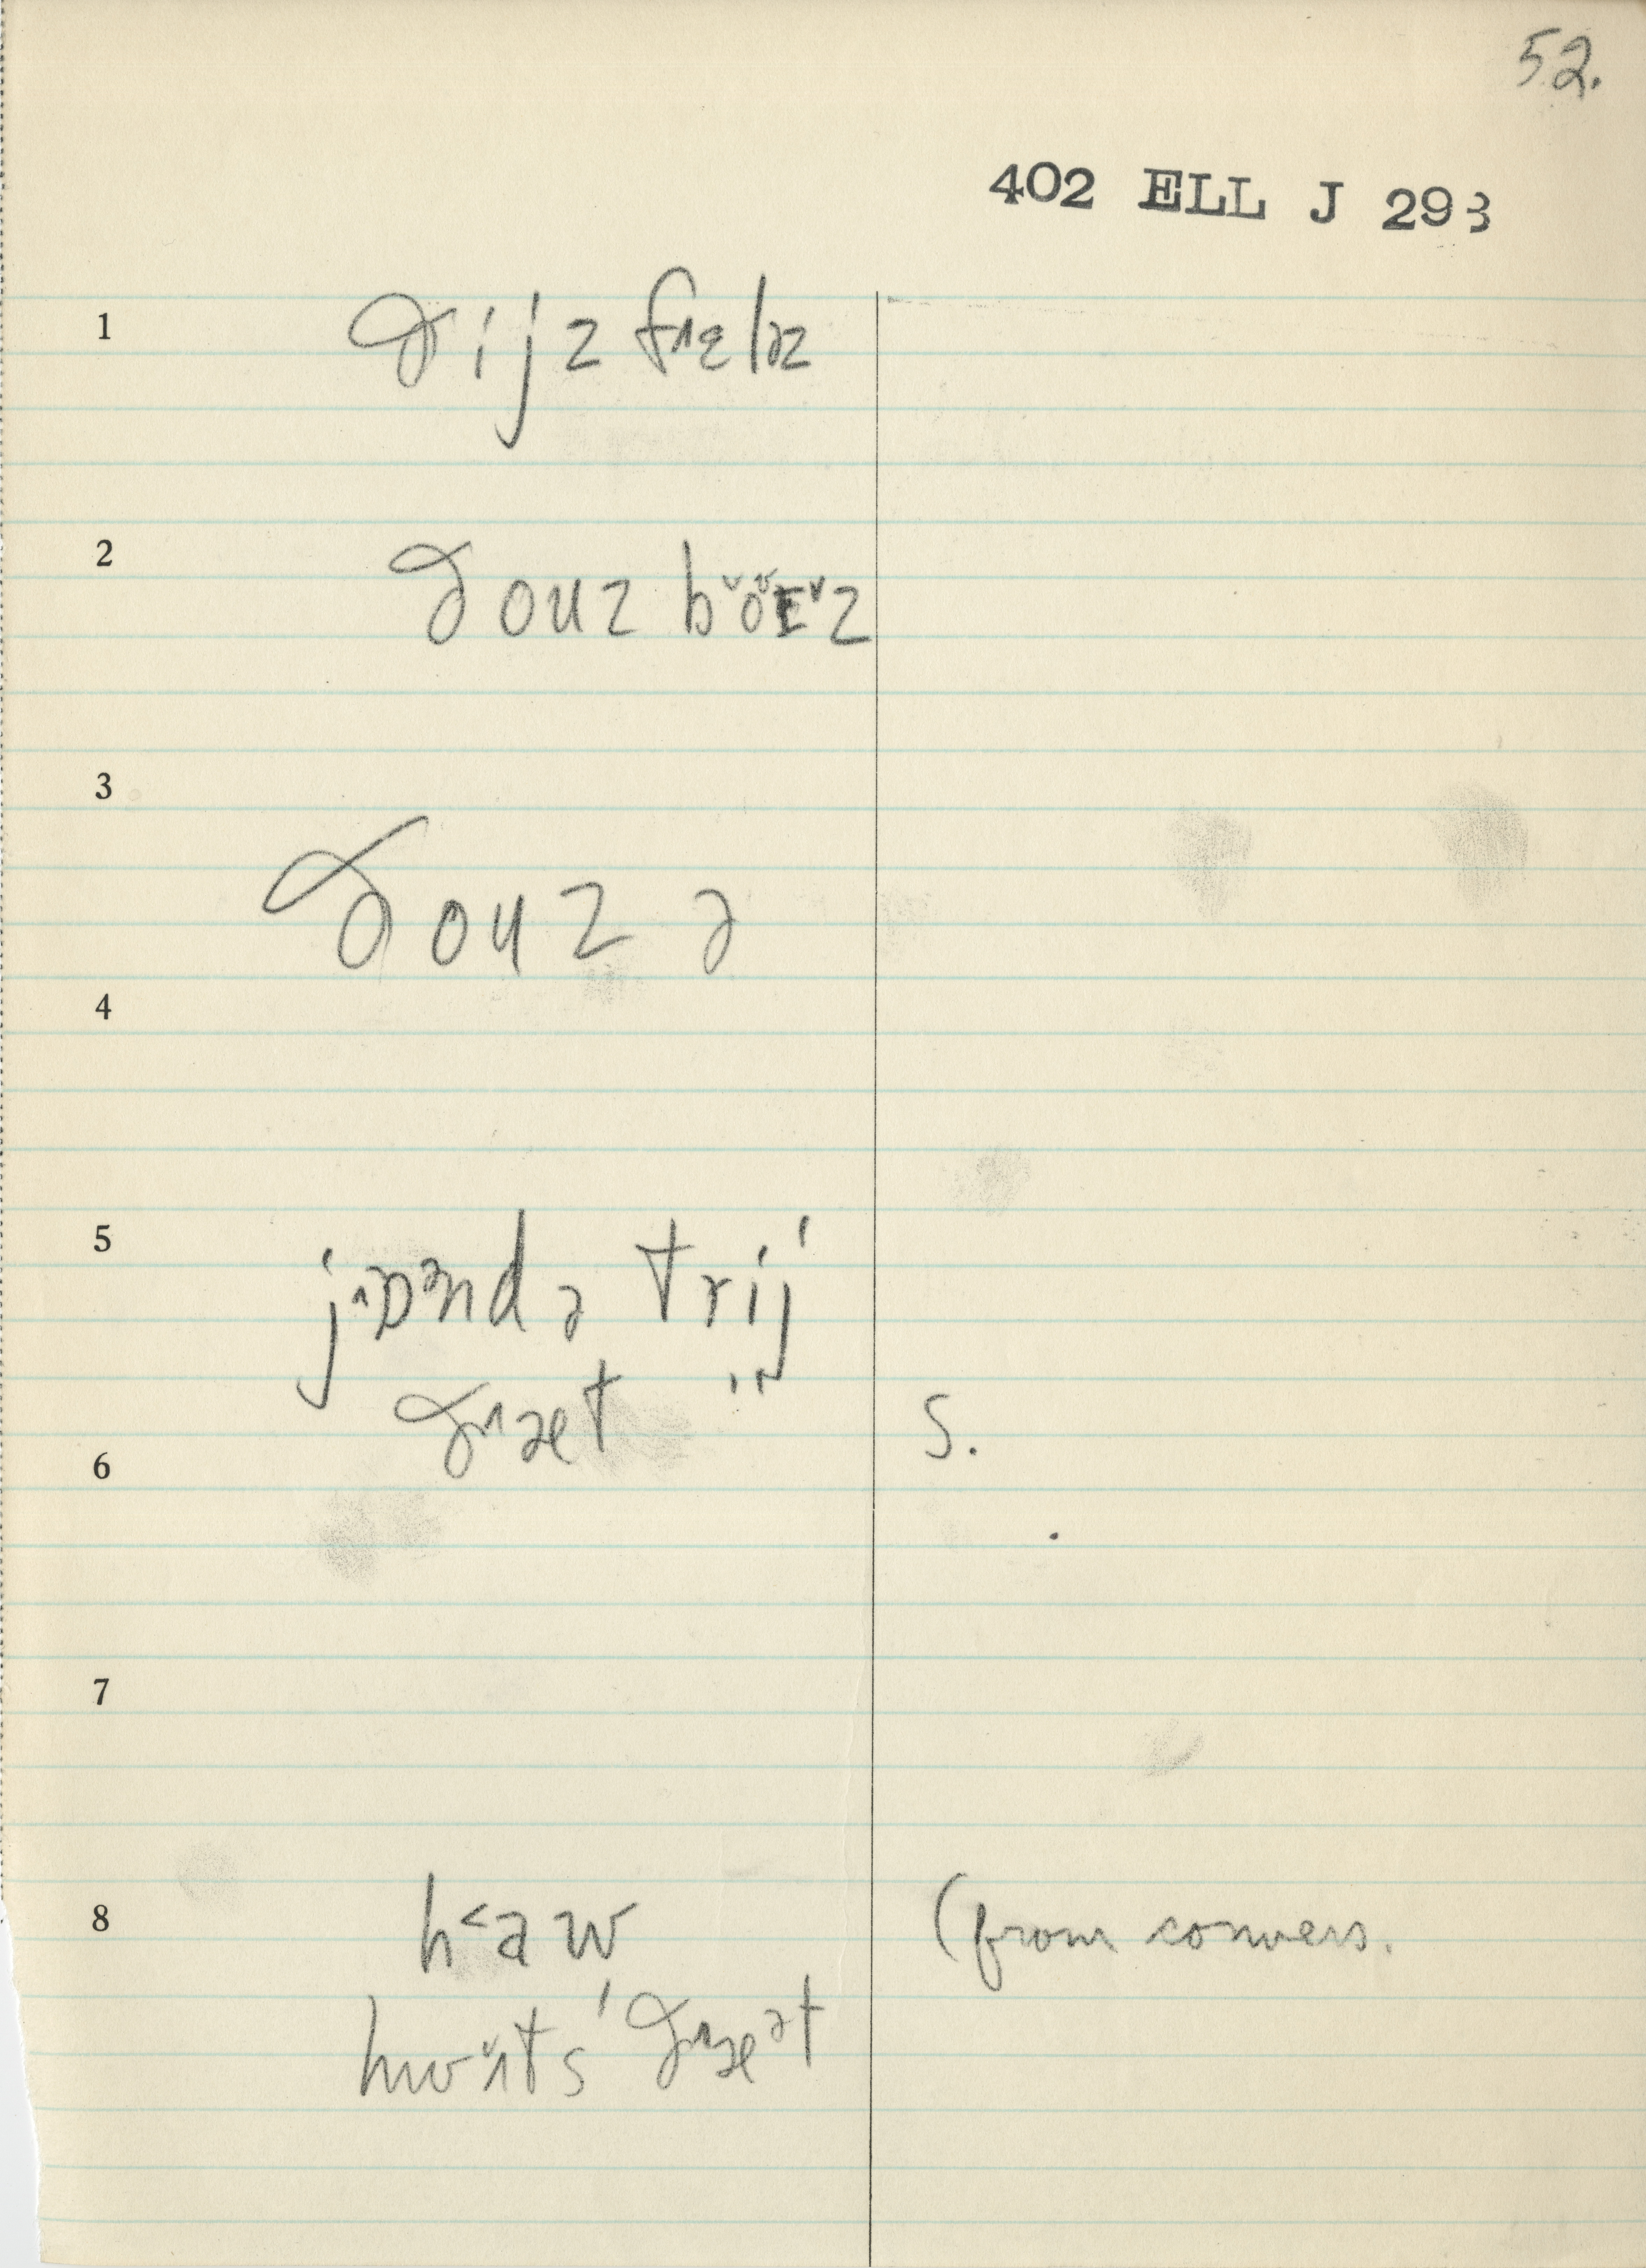 52.
402 ELL J 293
1 ðijz fɛləz
2 ðouz bɔɪz
3 ðouz ə
4
5 jɒəndə trij
ðæt
6 S.
7
8 h a w (from convers.
hwʌts ðæət